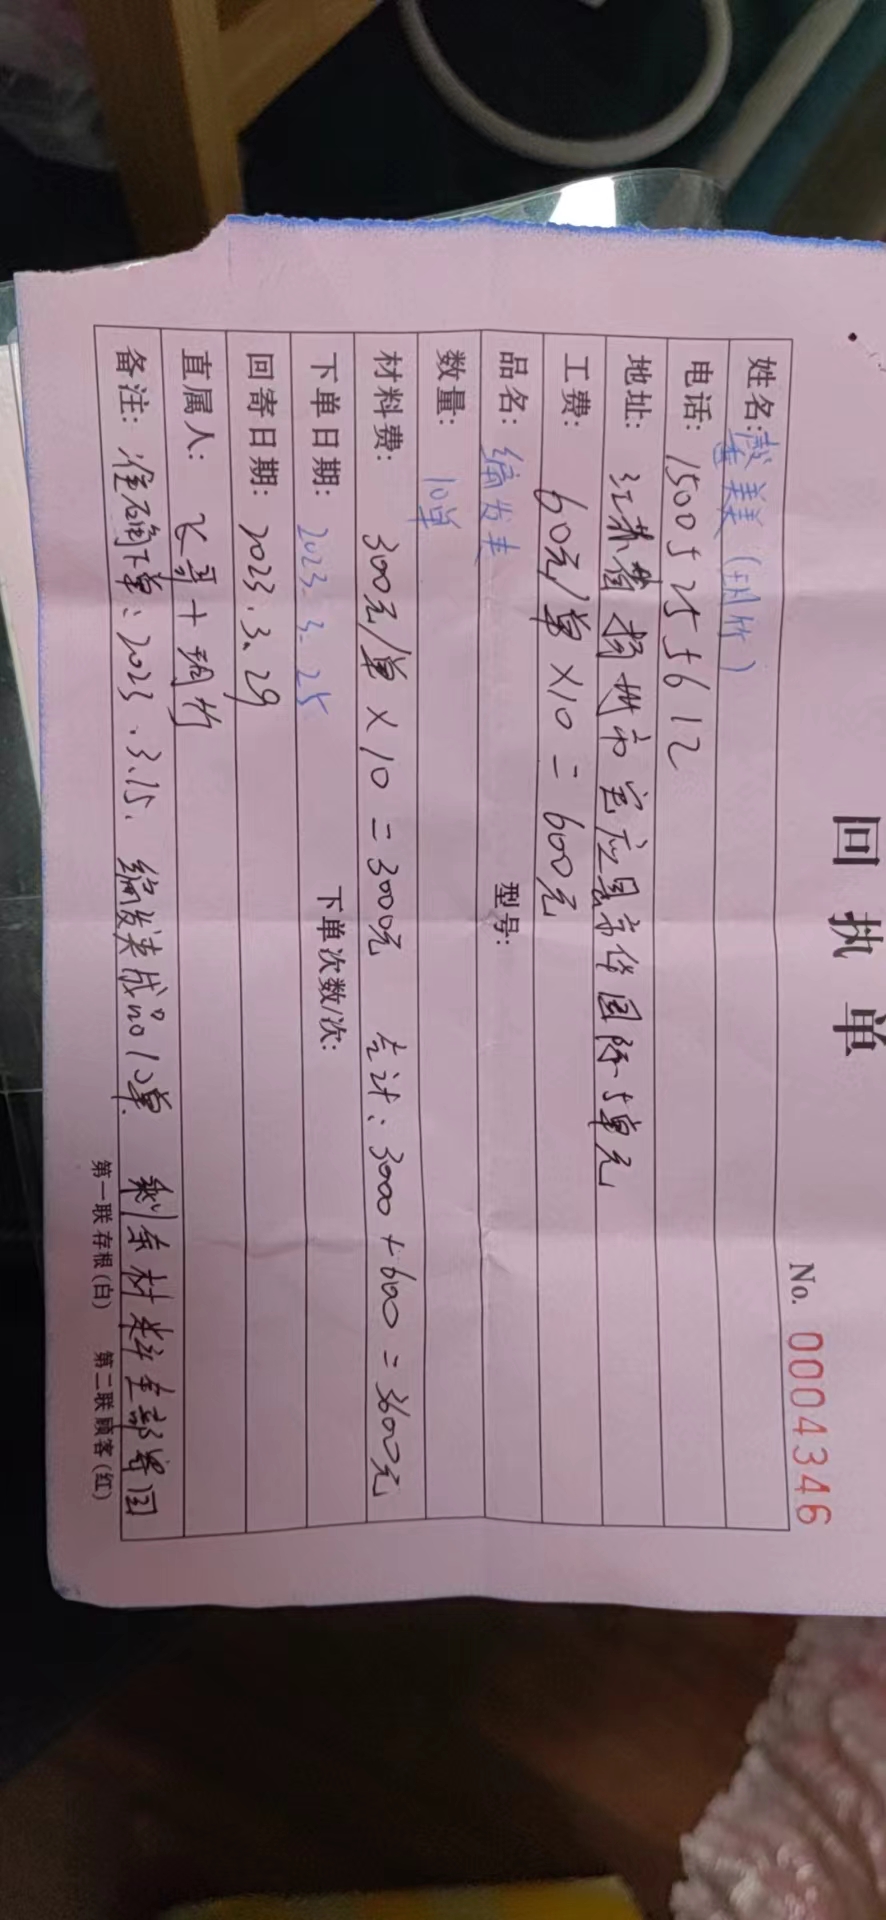 回执单
No. 0004346
姓名: 美美(玥竹)
电话: 15005255612
地址: 江苏省扬州市宝应县京华国际5单元
工费: 60元/单×10=600元
品名: 编发夹 型号:
数量: 10单
材料费: 300元/单×10=3000元 合计:3000+600=3600元
下单日期: 2023.3.25 下单次数/次:
回寄日期: 2023.3.29
直属人: 飞哥+玥竹
备注: 准确下单:2023.3.15. 编发夹成品10单. 剩余材料全部寄回
第一联存根(白) 第二联顾客(红)